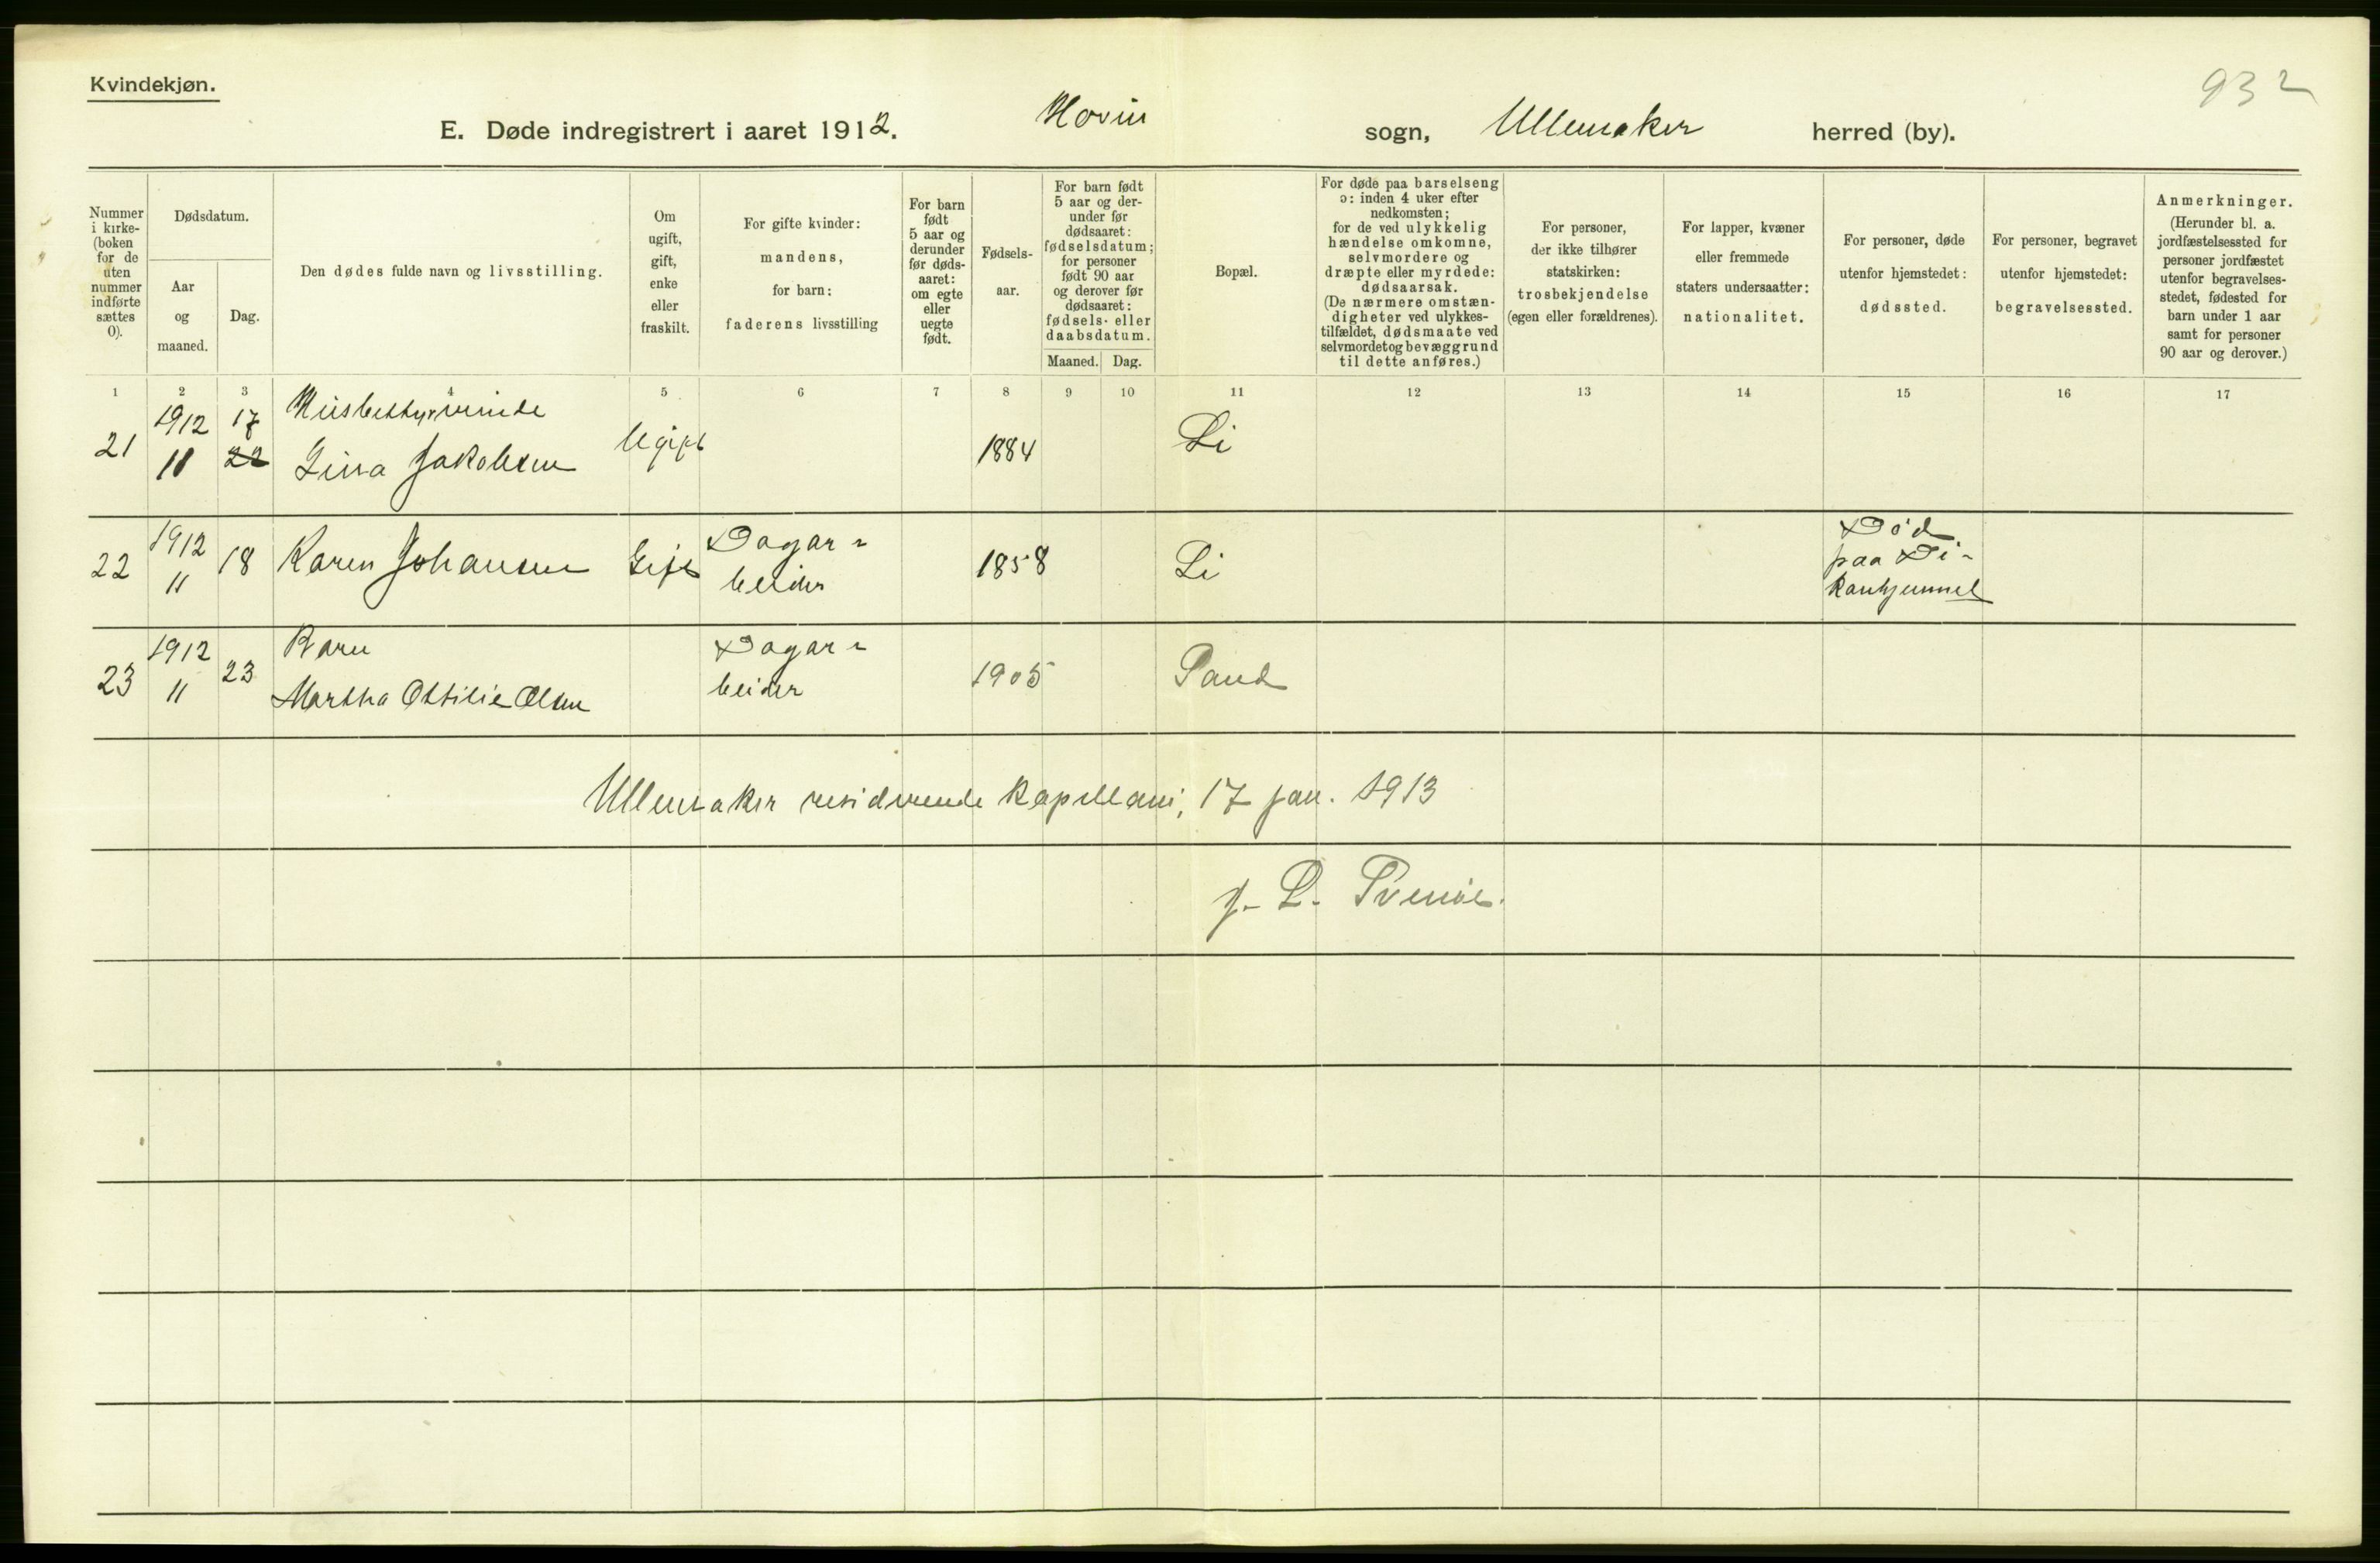 Kvindekjøn.
932
E. Døde indregistrert i aaret 1912. Hovin sogn, Ullensaker herred (by).
Nummer
i kirke-
(boken
for de
uten
nummer
indførte
sættes
0).
Dødsdatum.
Aar
og
maaned.
Dag.
Den dødes fulde navn og livsstilling.
Om
ugift,
gift,
enke
eller
fraskilt.
For gifte kvinder:
mandens,
for barn:
faderens livsstilling
For barn
født
5 aar og
derunder
før døds-
aaret:
om egte
eller
uegte
født.
Fødsels-
aar.
For barn født
5 aar og der-
under før
dødsaaret:
fødselsdatum;
for personer
født 90 aar
og derover før
dødsaaret:
fødsels- eller
daabsdatum.
Maaned. Dag.
Bopæl.
For døde paa barselseng
ɔ: inden 4 uker efter
nedkomsten;
for de ved ulykkelig
hændelse omkomne,
selvmordere og
dræpte eller myrdede:
dødsaarsak.
(De nærmere omstæn-
digheter ved ulykkes-
tilfældet, dødsmaate ved
selvmordet og bevæggrund
til dette anføres.)
For personer,
der ikke tilhører
statskirken:
trosbekjendelse
(egen eller forældrenes).
For lapper, kvæner
eller fremmede
staters undersaatter:
nationalitet.
For personer, døde
utenfor hjemstedet:
dødssted.
For personer, begravet
utenfor hjemstedet:
begravelsessted.
Anmerkninger.
(Herunder bl. a.
jordfæstelsessted for
personer jordfæstet
utenfor begravelses-
stedet, fødested for
barn under 1 aar
samt for personer
90 aar og derover.)
1 2 3 4 5 6 7 8 9 10 11 12 13 14 15 16 17
21 1912 17 Husbestyrerinde Ugift 1884 Li
11 22 Lina Jakobsen
22 1912 18 Karen Johansen Gift Dagar- 1858 Li Død
11 beider paa Di-
konhjemmet
23 1912 23 Barn Dagar- 1905 Sand
11 Martha Ottilie Olsen beider
Ullensaker residerende kapellani, 17 jan. 1913
J. L.